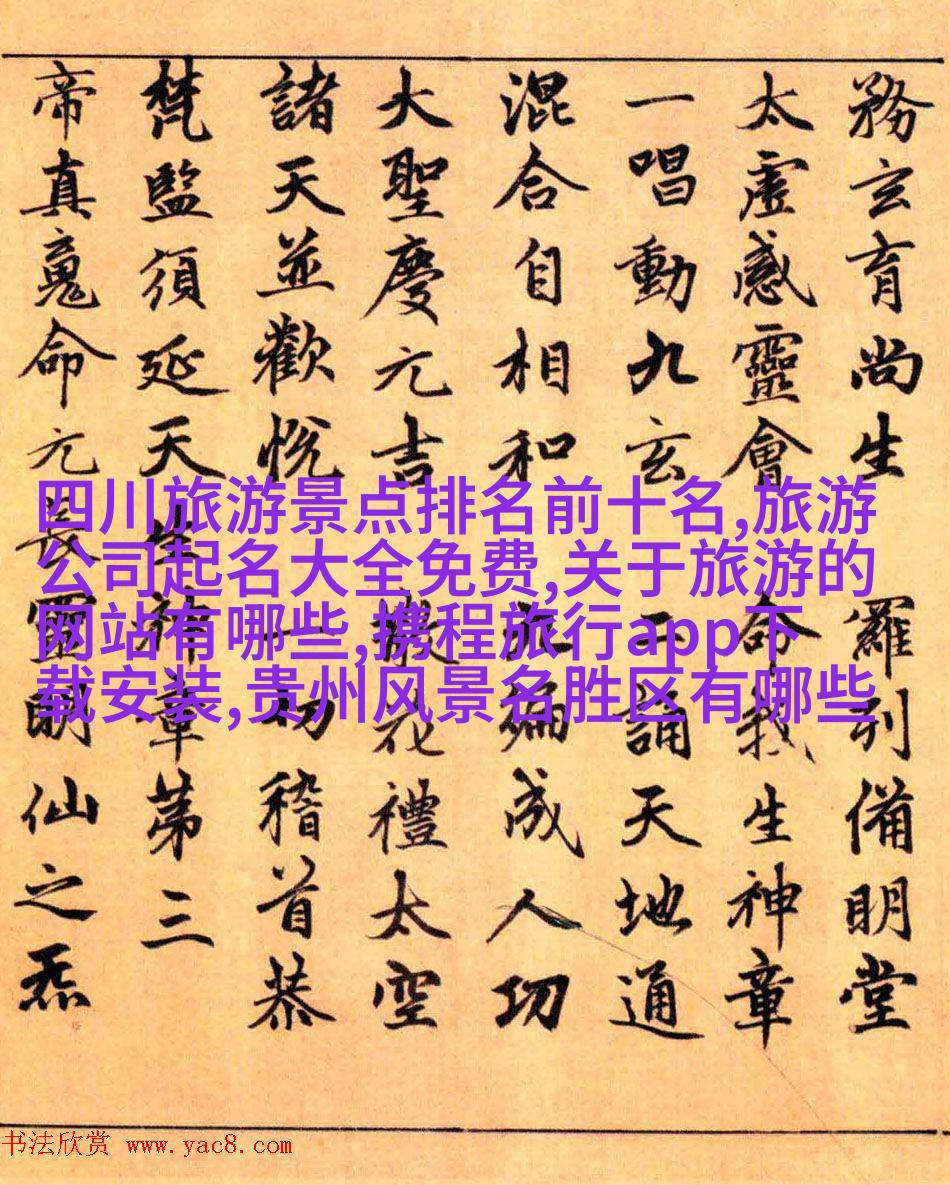 務玄育尚生 羅列備明堂
太虛感靈會 命我生神章
一唱動九玄 二誦天地通
混合自相和 九徧成人功
大聖慶元吉 散花禮太空
諸天並歡悅 一切稽首恭
梵監須延天生神章第三
帝真䰟命元長靈明仙之炁
四川旅游景点排名前十名,旅游
公司起名大全免费,关于旅游的
网站有哪些,携程旅行app下
载安装,贵州风景名胜区有哪些
书法欣赏 www.yac8.com